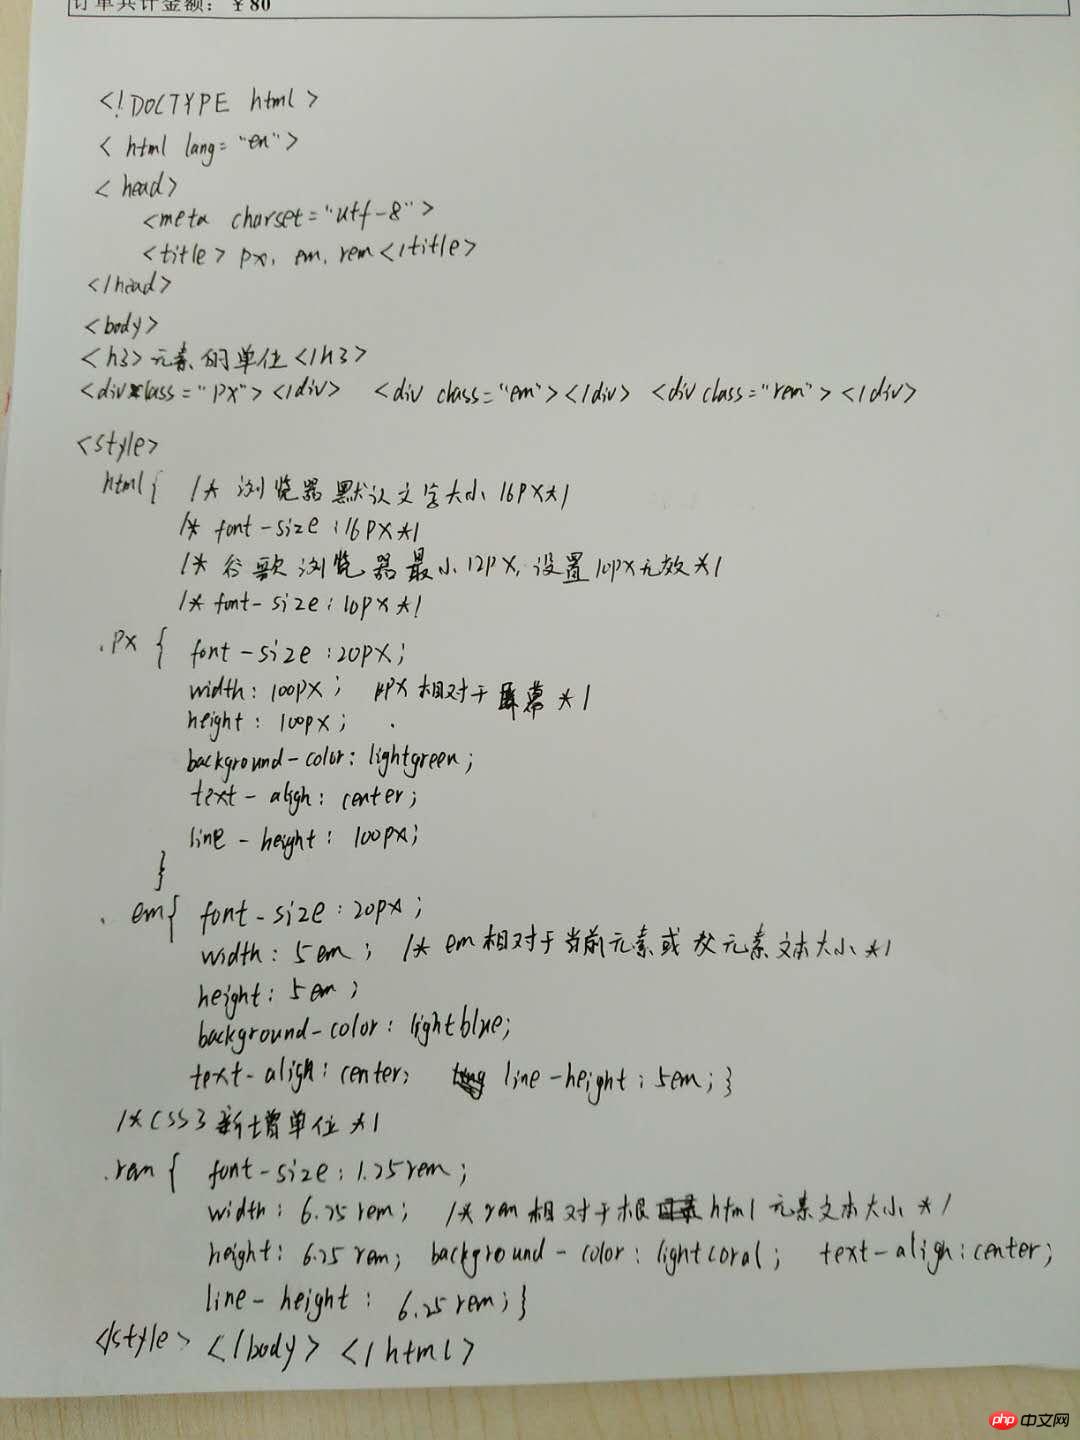 订单共计金额：￥80
<!DOCTYPE html>
<html lang="en">
<head>
<meta charset="utf-8">
<title>px, em, rem</title>
</head>
<body>
<h3>元素的单位</h3>
<div class="px"></div> <div class="em"></div> <div class="rem"></div>
<style>
html{ /* 浏览器默认文字大小16px*/
/* font-size:16px*/
/* 谷歌浏览器最小12px, 设置10px无效*/
/* font-size:10px*/
.px { font-size:20px;
width: 100px; px相对于屏幕*/
height: 100px;
background-color: lightgreen;
text-align: center;
line-height: 100px;
}
.em{ font-size:20px;
width: 5em; /* em相对于当前元素或父元素文本大小*/
height: 5em;
background-color: lightblue;
text-align: center; line-height: 5em;}
/*CSS3新增单位*/
.rem{ font-size: 1.25rem;
width: 6.25rem; /*rem相对于根html元素文本大小*/
height: 6.25rem; background-color: lightcoral; text-align: center;
line-height: 6.25rem;}
</style> </body> </html>
php中文网